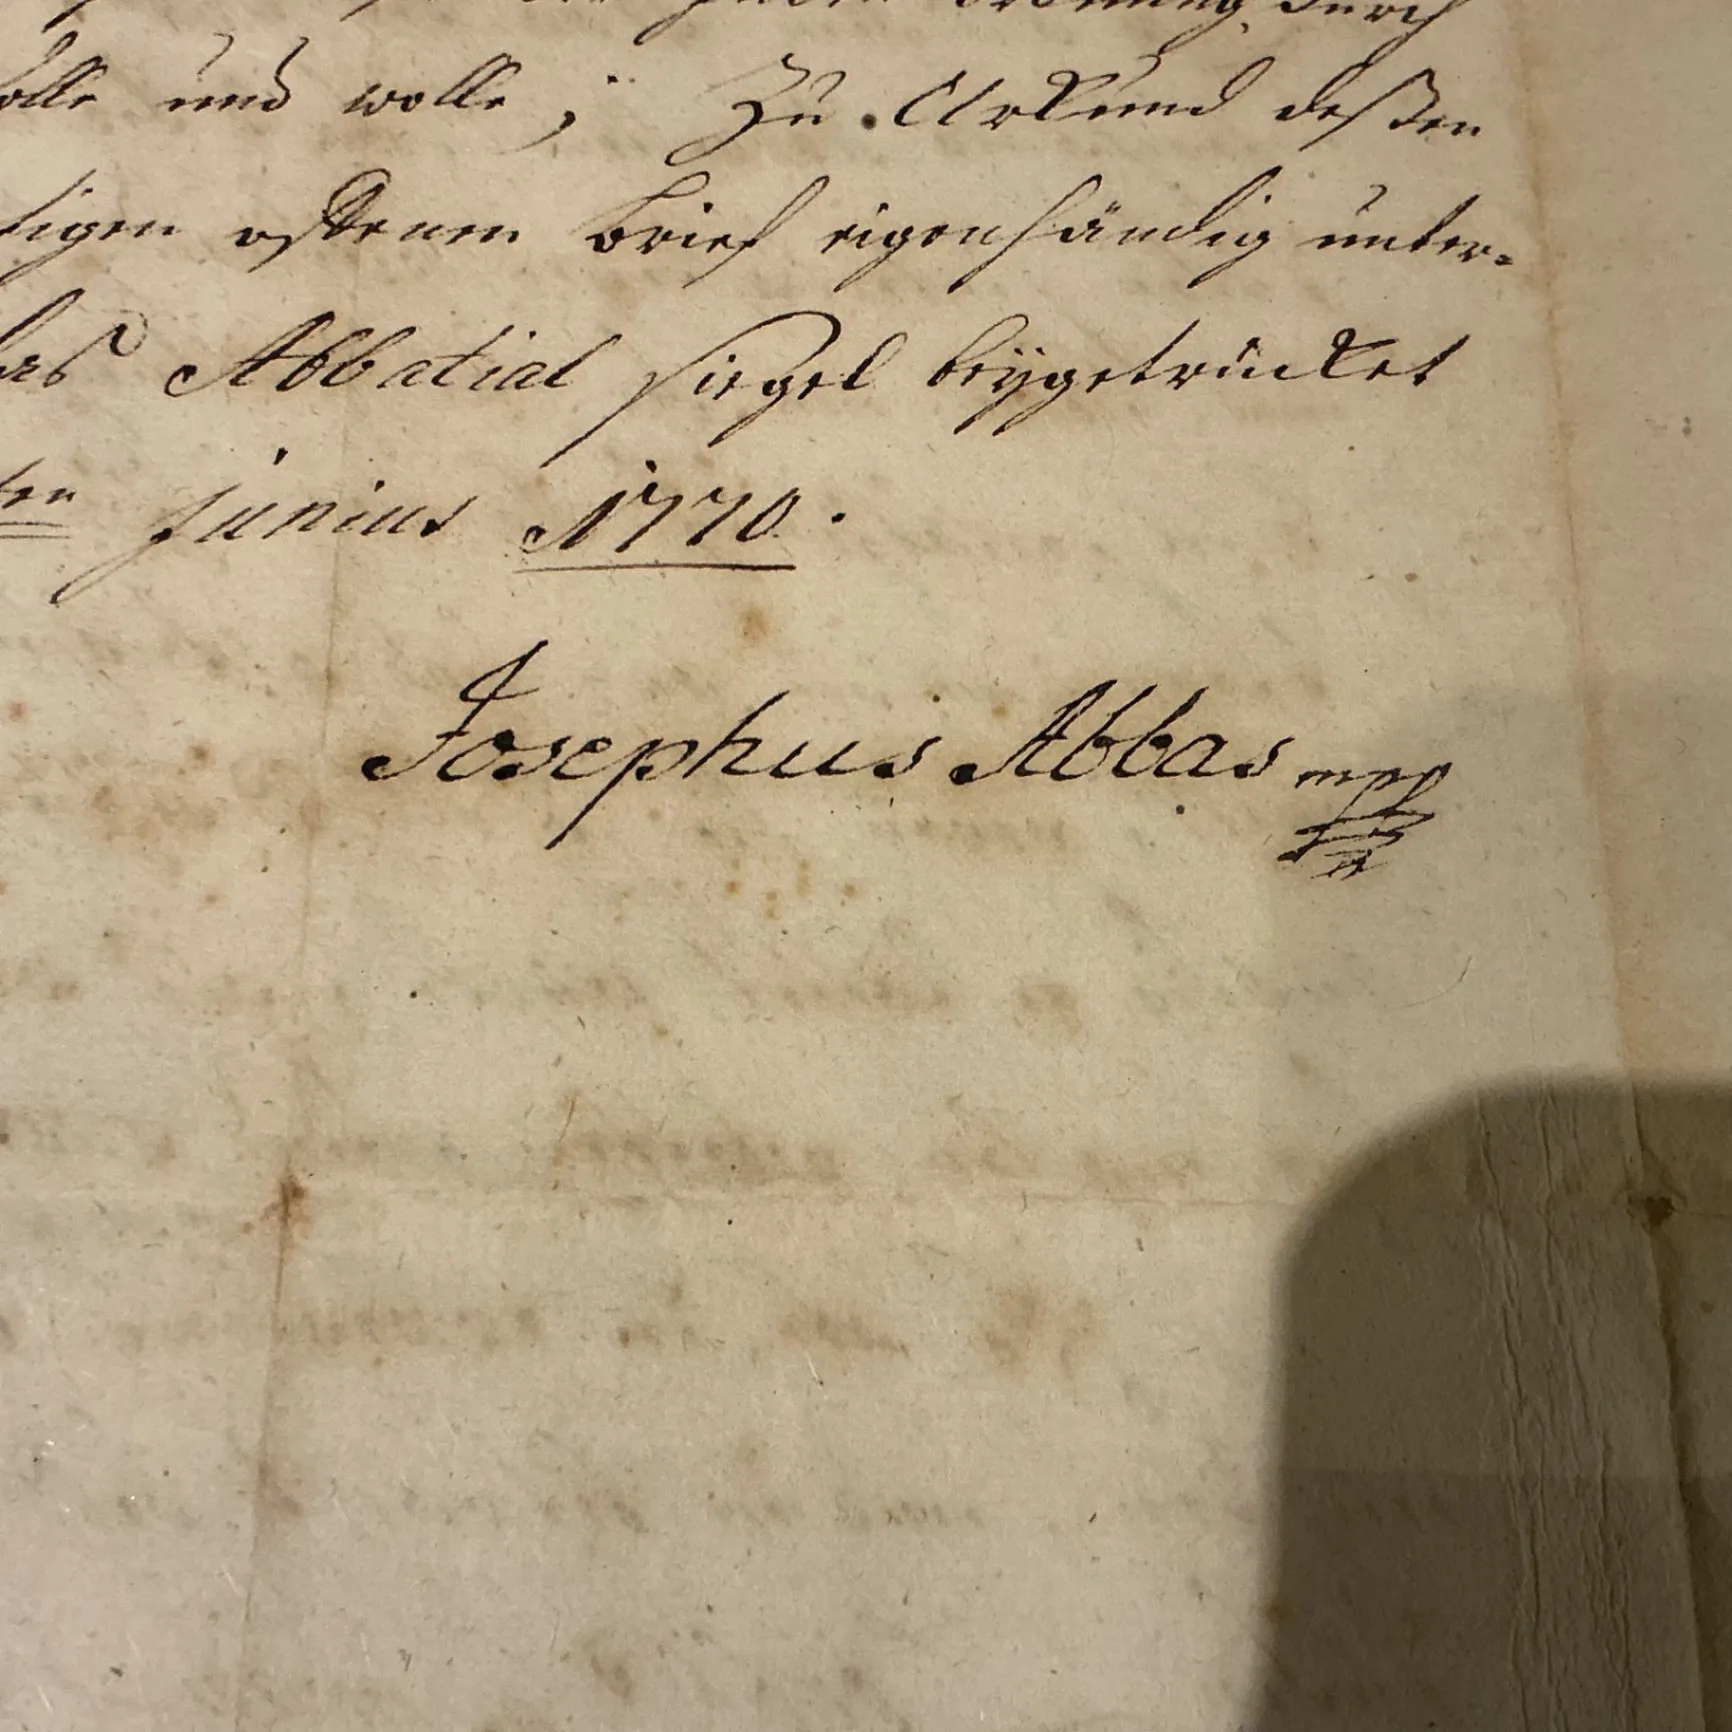 ordnung durch
solle und wolle; Zu Urkund deßen
tigen offenen brief eigenhändig unter=
Abbatial siegel beÿgetrücket
ten Junius 1770.
Josephus Abbas mpp